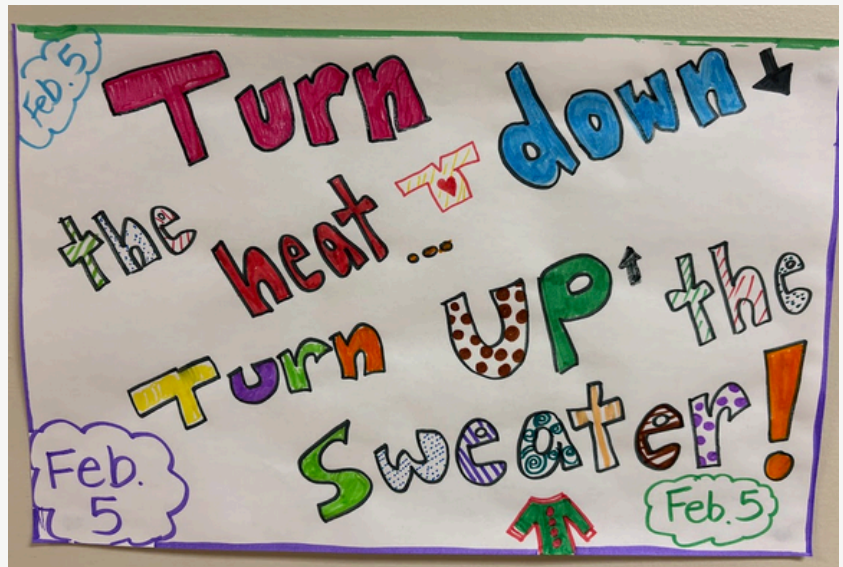 Feb. 5
Turn down
the heat...
Turn UP the
Sweater!
Feb.
5
Feb. 5